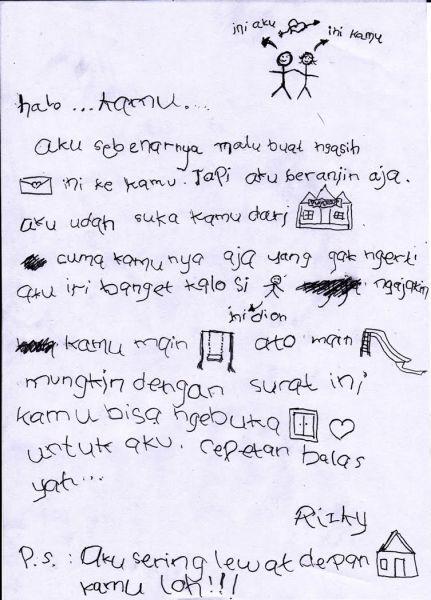 ini aku
ini kamu
halo ... kamu ...
aku sebenarnya malu buat ngasih
ini ke kamu. Tapi aku beranjin aja.
aku udah suka kamu dari
cuma kamu nya aja yang gak ngerti
aku iri banget kalo si ngajakin
ini dion
kamu main ato main
mungkin dengan surat ini
kamu bisa ngebuka
untuk aku. cepetan balas
yah...
Rizky
P.s. : Aku sering lewat depan
kamu loh!!!